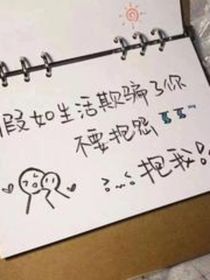 假如生活欺骗了你
不要抱怨
抱我!